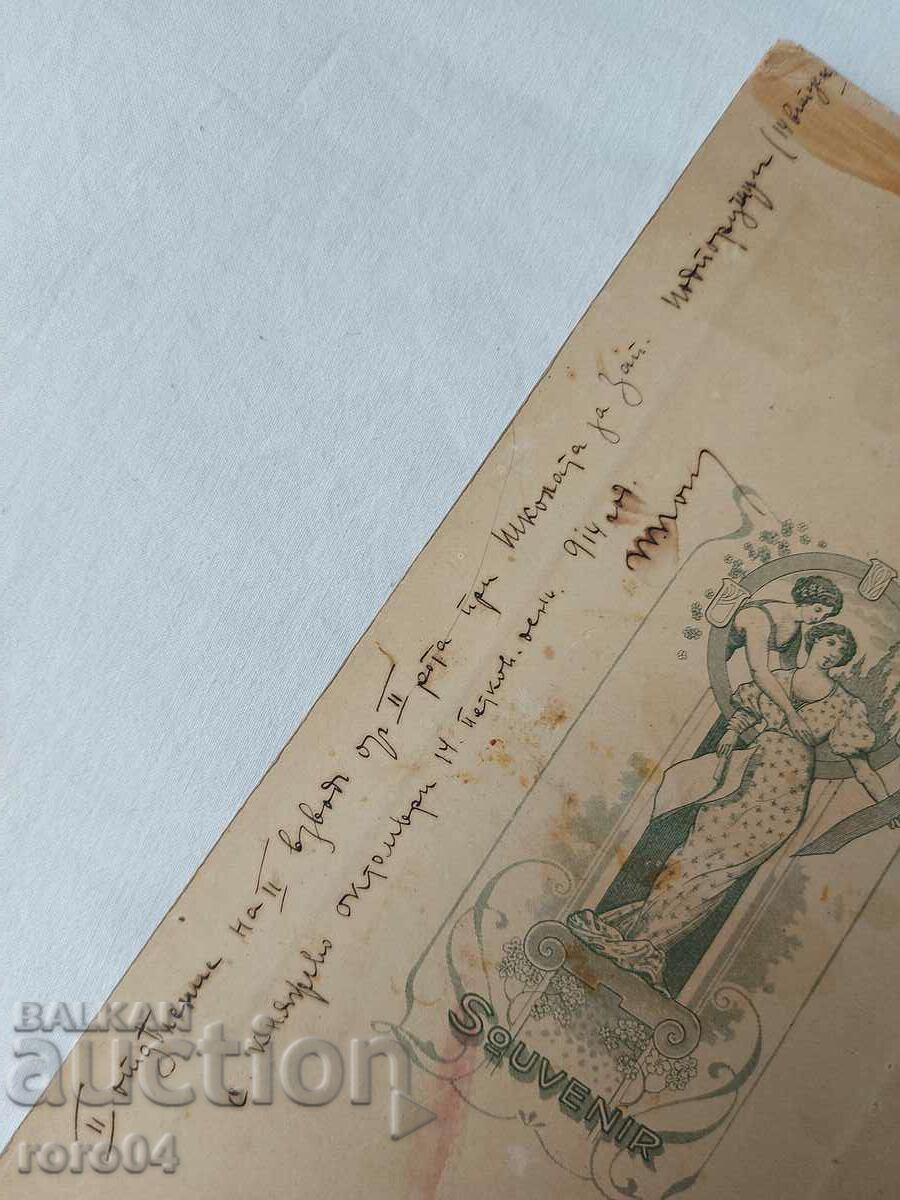 II отделение на II взводъ от II рота при Школата за Зап. подпоручци (14 випускъ
с. Княжево октомври 14. Петков. день. 914 год.
SOUVENIR
BALKAN
auction
roro04